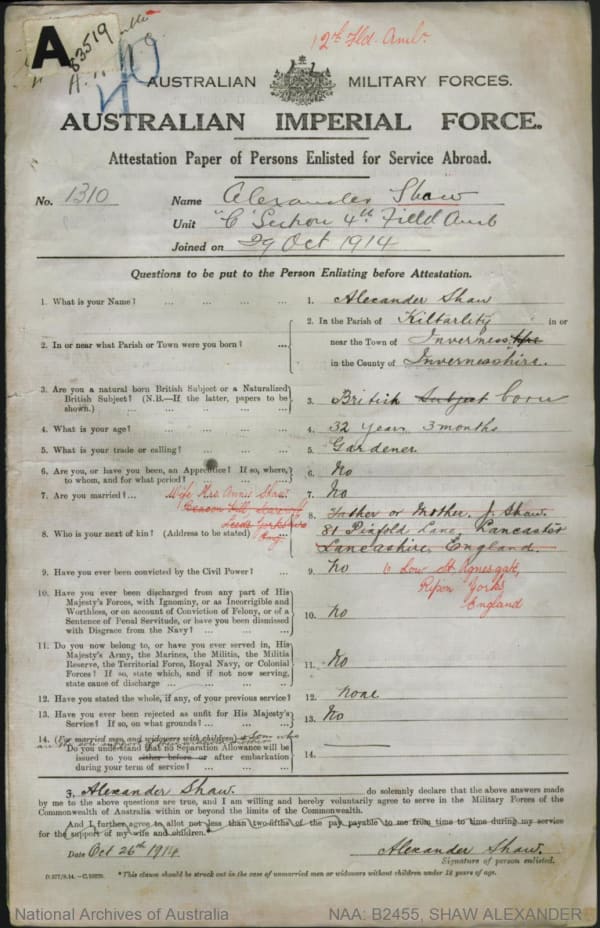 A
83519
12th Fld. Amb.
AUSTRALIAN MILITARY FORCES.
AUSTRALIAN IMPERIAL FORCE.
Attestation Paper of Persons Enlisted for Service Abroad.
No. 1310 Name Alexander Shaw
Unit "C" Section 4th Field Amb
Joined on 29 Oct 1914
Questions to be put to the Person Enlisting before Attestation.
1. What is your Name? ... ... ... 1. Alexander Shaw
2. In or near what Parish or Town were you born? ... 2. In the Parish of Kiltarlity in or
near the Town of Inverness
in the County of Invernesshire.
3. Are you a natural born British Subject or a Naturalized
British Subject? (N.B.—If the latter, papers to be
shown.) ... ... ... ... 3. British Subject born
4. What is your age? ... ... ... 4. 32 years 3 months
5. What is your trade or calling? ... ... ... 5. Gardener
6. Are you, or have you been, an Apprentice? If so, where,
to whom, and for what period? ... ... 6. No
7. Are you married? ... Wife Mrs Annie Shaw 7. No
Beacon Hill
Leeds Yorkshire
Eng
8. Who is your next of kin? (Address to be stated) 8. Father or Mother. J. Shaw.
81 Pinfold Lane, Lancaster
Lancashire, England.
6 Low St Agnesgate,
Ripon Yorks
England
9. Have you ever been convicted by the Civil Power? ... 9. No
10. Have you ever been discharged from any part of His
Majesty's Forces, with Ignominy, or as Incorrigible and
Worthless, or on account of Conviction of Felony, or of a
Sentence of Penal Servitude, or have you been dismissed
with Disgrace from the Navy? ... ... ... 10. No
11. Do you now belong to, or have you ever served in, His
Majesty's Army, the Marines, the Militia, the Militia
Reserve, the Territorial Force, Royal Navy, or Colonial
Forces? If so, state which, and if not now serving,
state cause of discharge ... ... ... 11. No
12. Have you stated the whole, if any, of your previous service? 12. None
13. Have you ever been rejected as unfit for His Majesty's
Service? If so, on what grounds? ... ... 13. No
14. (For married men, and widowers with children) & Son who
Do you understand that no Separation Allowance will be
issued to you either before or after embarkation
during your term of service? ... ... ... 14.
I, Alexander Shaw do solemnly declare that the above answers made
by me to the above questions are true, and I am willing and hereby voluntarily agree to serve in the Military Forces of the
Commonwealth of Australia within or beyond the limits of the Commonwealth.
And I further agree to allot not less than two-fifths of the pay payable to me from time to time during my service
for the support of my wife and children.*
Date Oct 26th 1914 Alexander Shaw.
Signature of person enlisted.
D.577/9.14.—C.10529. *This clause should be struck out in the case of unmarried men or widowers without children under 18 years of age.
National Archives of Australia NAA: B2455, SHAW ALEXANDER